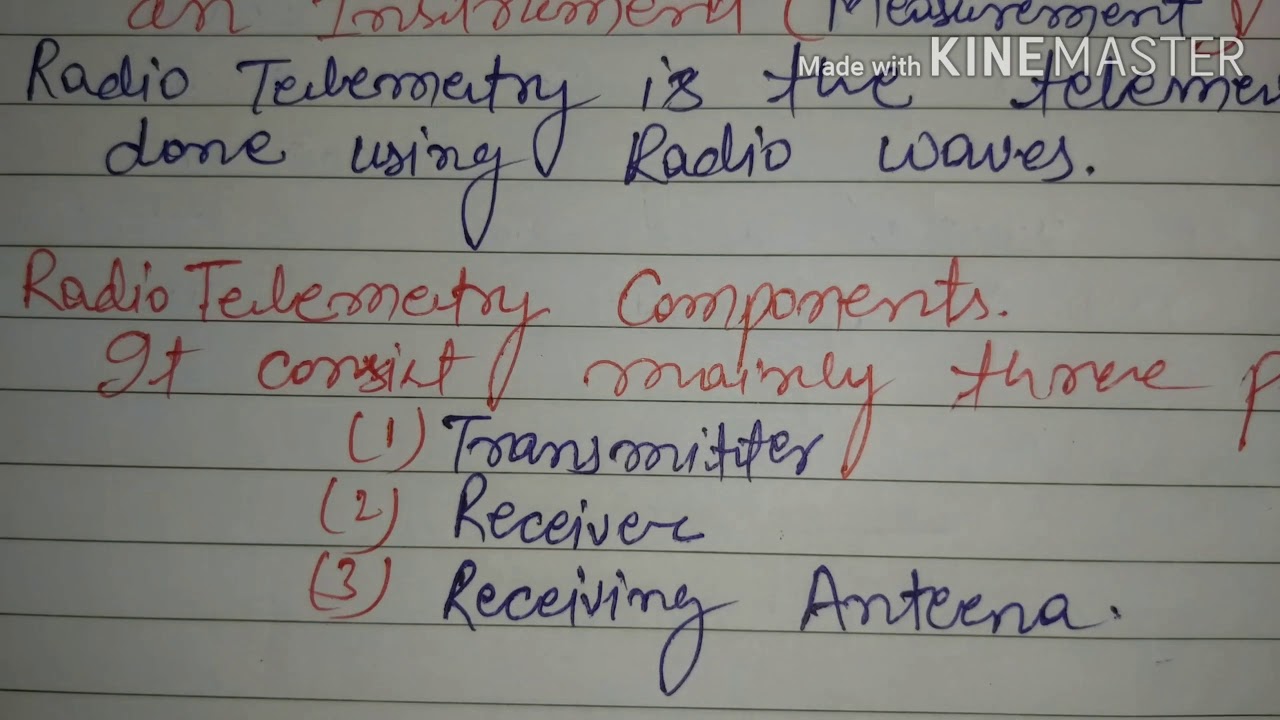 an Instrument (Measurement
Made with KINEMASTER
Radio Telemetry is the teleme
done using Radio waves.
Radio Telemetry Components.
It consist mainly three p
(1) Transmitter
(2) Receiver
(3) Receiving Anteena.